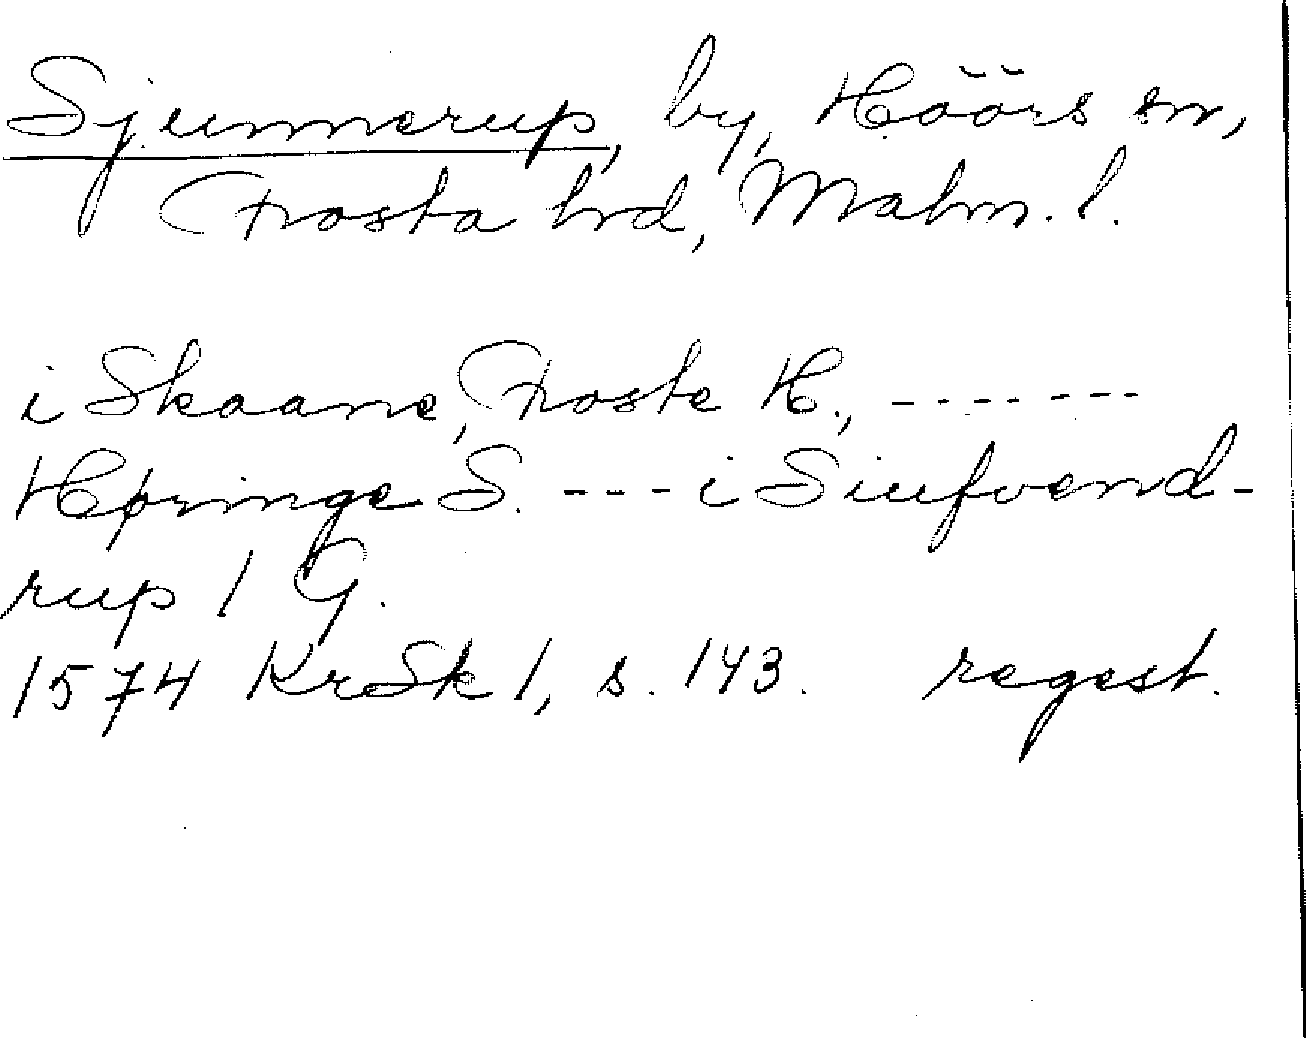 Sjunnerup, by, Höörs sn,
Frosta hrd, Malm. l.
i Skaane, Froste H., -------
Høringe S. --- i Siufvend-
rup 1 G.
1574 KrSk 1, s. 143. regest.